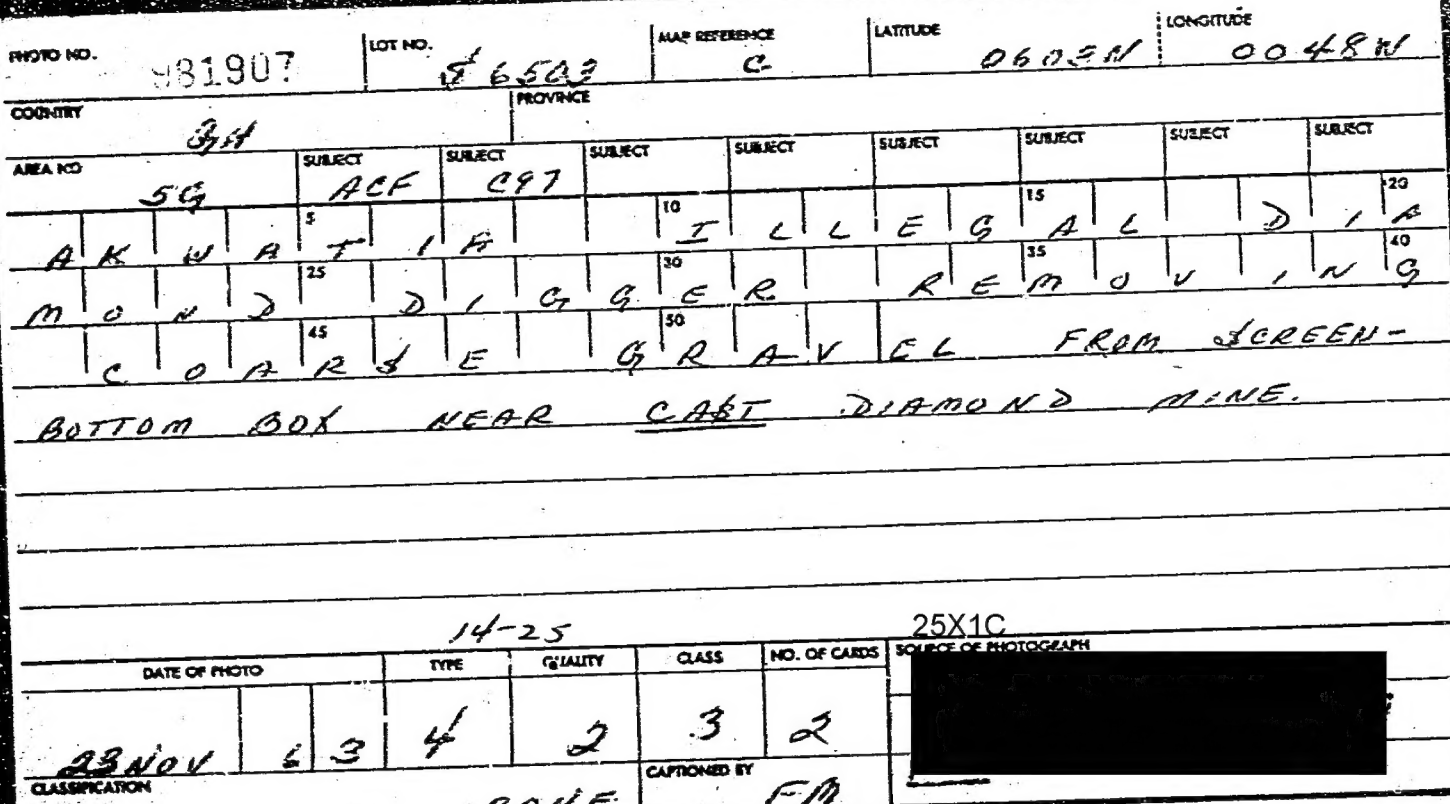 PHOTO NO. 981907 LOT NO. $6503 MAP REFERENCE C- LATITUDE 0603N LONGITUDE 0048W
COUNTRY GH PROVINCE
AREA NO 5G SUBJECT ACF SUBJECT C97 SUBJECT SUBJECT SUBJECT SUBJECT SUBJECT SUBJECT
5 10 15 20
AKWATIA ILLEGAL DIA
25 30 35 40
MOND DIGGER REMOVING
45 50
COARSE GRAVEL FROM SCREEN-
BOTTOM BOX NEAR CAST DIAMOND MINE.
14-25 25X1C
DATE OF PHOTO TYPE QUALITY CLASS NO. OF CARDS SOURCE OF PHOTOGRAPH
23 NOV 63 4 2 3 2
CLASSIFICATION CAPTIONED BY
FM